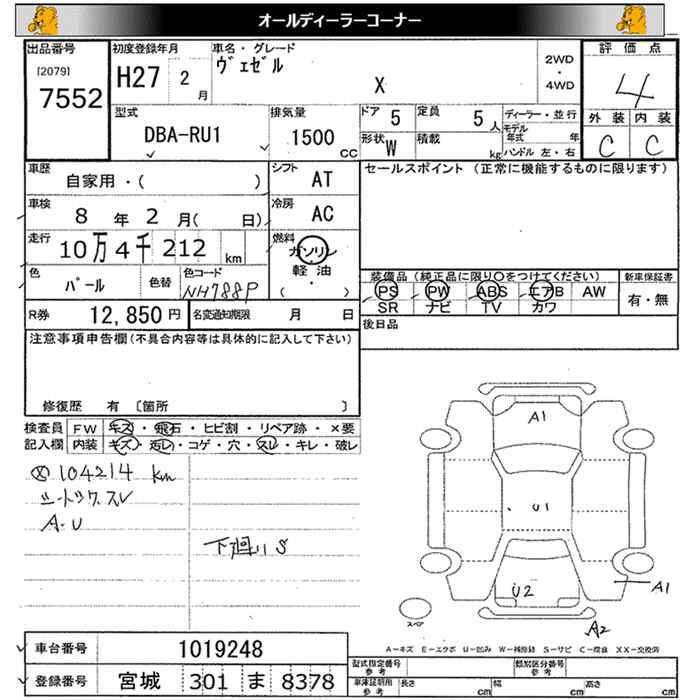 オールディーラーコーナー
出品番号
[2079]
7552
初度登録年月
H27 2 月
車名・グレード
ヴェゼル
X
2WD
・
4WD
評価点
4
外装 内装
C C
型式
DBA-RU1
排気量
1500 CC
ドア 5
定員 5 人
形状 W
積載 kg
ディーラー・並行
モデル年式 年
ハンドル 左・右
車歴
自家用・( )
シフト AT
車検
8 年 2 月( 日)
冷房 AC
走行
10万4千212 km
燃料
ガソリン
軽油
( ・ )
色
パール
色替
色コード
NH788P
R券 12,850 円
名変通知期限 月 日
セールスポイント (正常に機能するものに限ります)
装備品(純正品に限り○をつけてください)
PS PW ABS エアB AW
SR ナビ TV カワ
新車保証書
有・無
後日品
注意事項申告欄(不具合内容等は具体的に記入して下さい)
修復歴 有 〔箇所 〕
検査員 FW キズ・飛石・ヒビ割・リペア跡・×要
記入欄 内装 キズ・汚レ・コゲ・穴・スレ・キレ・破レ
104214 km
シートシワ.スレ
A-U
下廻りS
A1
U1
U2
A1
A2
スペア
A-キズ E-エクボ U-凹み W-補修跡 S-サビ C-腐食 XX-交換済
車台番号 1019248
登録番号 宮城 301 ま 8378
型式指定番号 参考
類別区分番号 参考
車庫証明用 参考
長さ cm 幅 cm 高さ cm